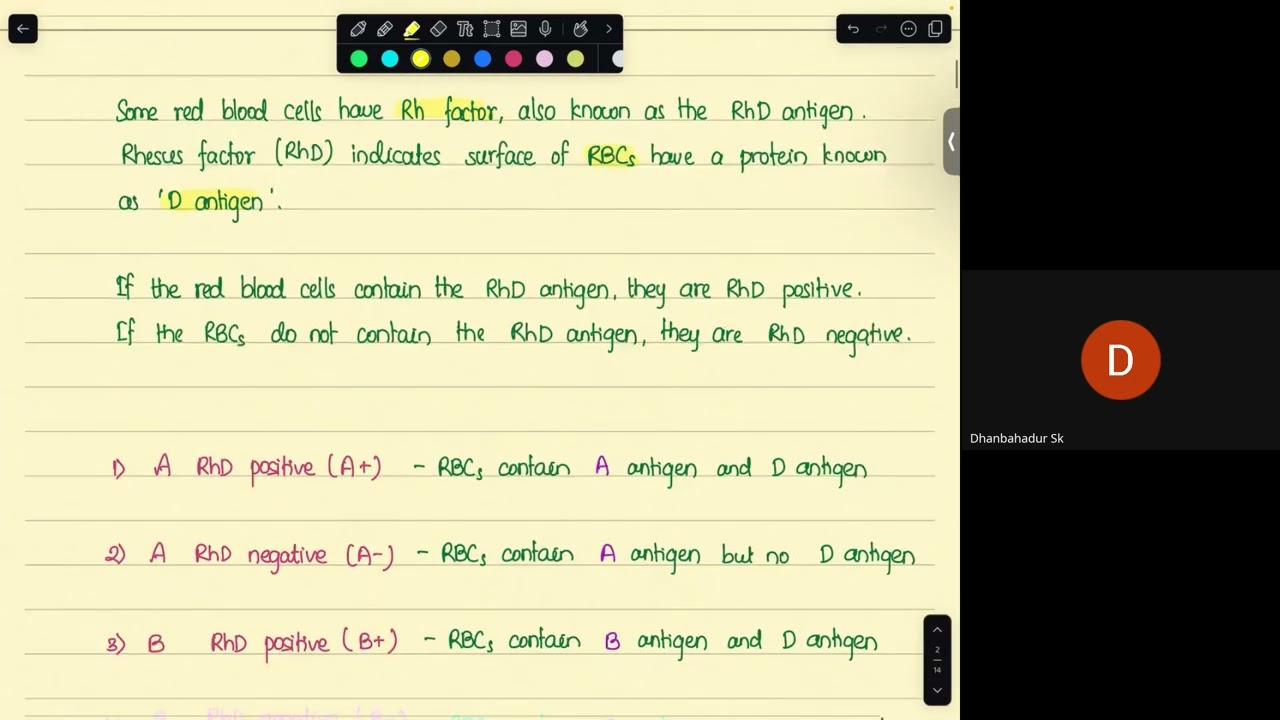 Some red blood cells have Rh factor, also known as the RhD antigen.
Rhesus factor (RhD) indicates surface of RBCs have a protein known
as 'D antigen'.
If the red blood cells contain the RhD antigen, they are RhD positive.
If the RBCs do not contain the RhD antigen, they are RhD negative.
1) A RhD positive (A+) - RBCs contain A antigen and D antigen
2) A RhD negative (A-) - RBCs contain A antigen but no D antigen
3) B RhD positive (B+) - RBCs contain B antigen and D antigen
Tt
2
14
D
Dhanbahadur Sk